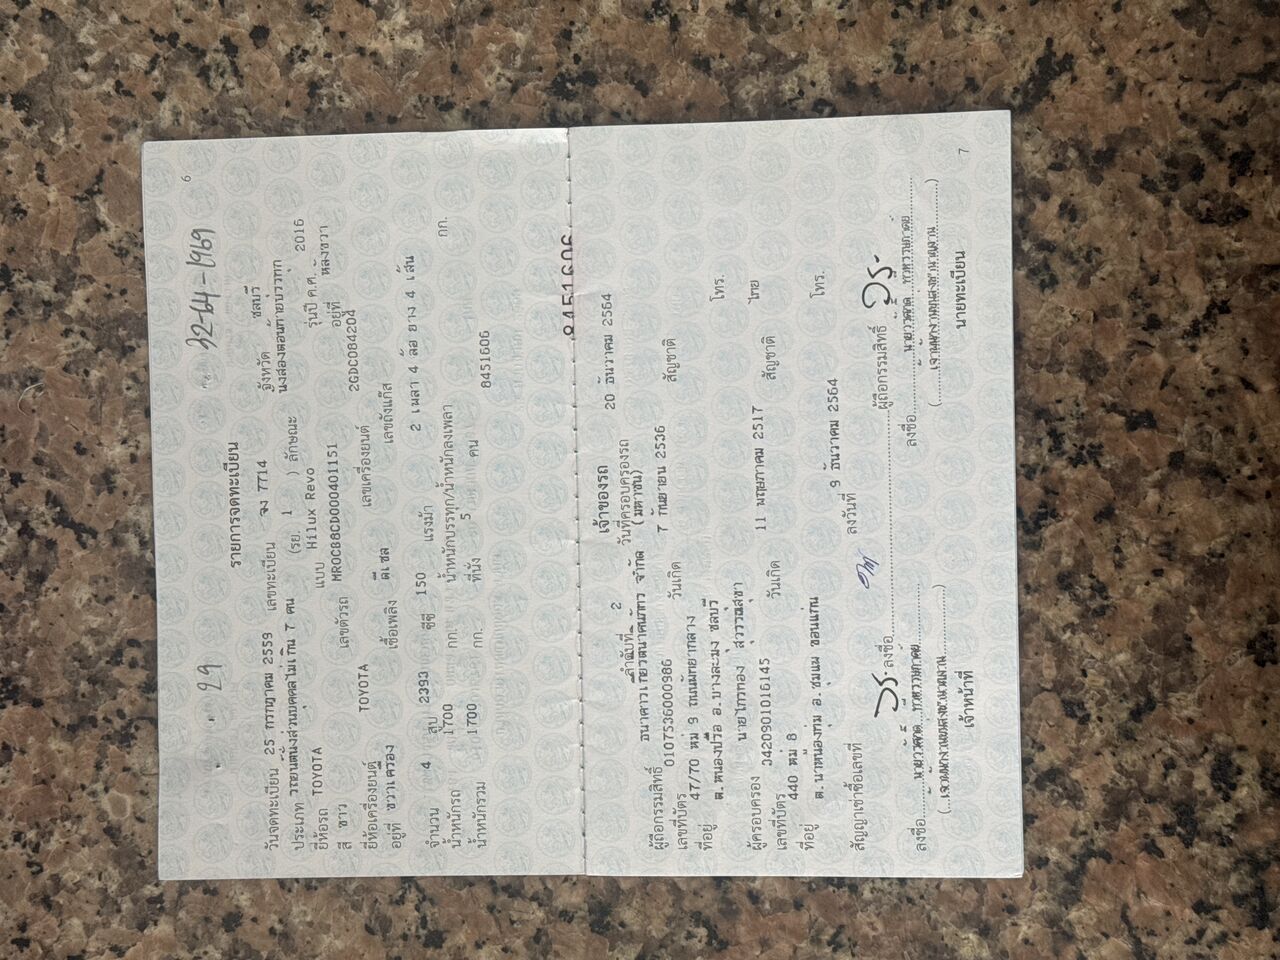 6
29
32-64-1969
รายการจดทะเบียน
วันจดทะเบียน 25 กรกฎาคม 2559 เลขทะเบียน 7714 จังหวัด ชลบุรี
ประเภท รถยนต์นั่งส่วนบุคคลไม่เกิน 7 คน (รย. 1 ) ลักษณะ นั่งสองตอนท้ายบรรทุก
ยี่ห้อรถ TOYOTA แบบ Hilux Revo รุ่นปี ค.ศ. 2016
สี ขาว เลขตัวรถ อยู่ที่ หลังขวา
ยี่ห้อเครื่องยนต์ TOYOTA เลขเครื่องยนต์ 2GDC084204
อยู่ที่ ขวาเครื่อง เชื้อเพลิง ดีเซล เลขถังแก๊ส
จำนวน 4 สูบ 2393 ซีซี 150 แรงม้า 2 เพลา 4 ล้อ ยาง 4 เส้น
น้ำหนักรถ 1700 กก. น้ำหนักบรรทุก/น้ำหนักลงเพลา กก.
น้ำหนักรวม 1700 กก. ที่นั่ง 5 คน 8451606
8451606
เจ้าของรถ
ลำดับที่ 2 วันที่ครอบครองรถ 20 ธันวาคม 2564
ผู้ถือกรรมสิทธิ์ ธนาคารเกียรตินาคินภัทร จำกัด (มหาชน)
เลขที่บัตร 0107536000986 วันเกิด 7 กันยายน 2536 สัญชาติ
ที่อยู่ 47/70 หมู่ 9 ถนนพัทยากลาง
ต.หนองปรือ อ.บางละมุง ชลบุรี โทร.
ผู้ครอบครอง นายไกรทอง
เลขที่บัตร 3420901016145 วันเกิด 11 พฤษภาคม 2517 สัญชาติ ไทย
ที่อยู่ 440 หมู่ 8
ต. อ. ขอนแก่น โทร.
สัญญาเช่าซื้อเลขที่ ลงวันที่ 9 ธันวาคม 2564
ลงชื่อ ผู้ถือกรรมสิทธิ์
ลงชื่อ ลงชื่อ
เจ้าหน้าที่ นายทะเบียน
7